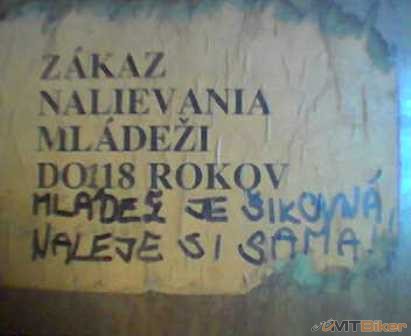 ZÁKAZ
NALIEVANIA
MLÁDEŽI
DO118 ROKOV
MLÁDEŽ JE ŠIKOVNÁ,
NALEJE SI SAMA!
MTBiker